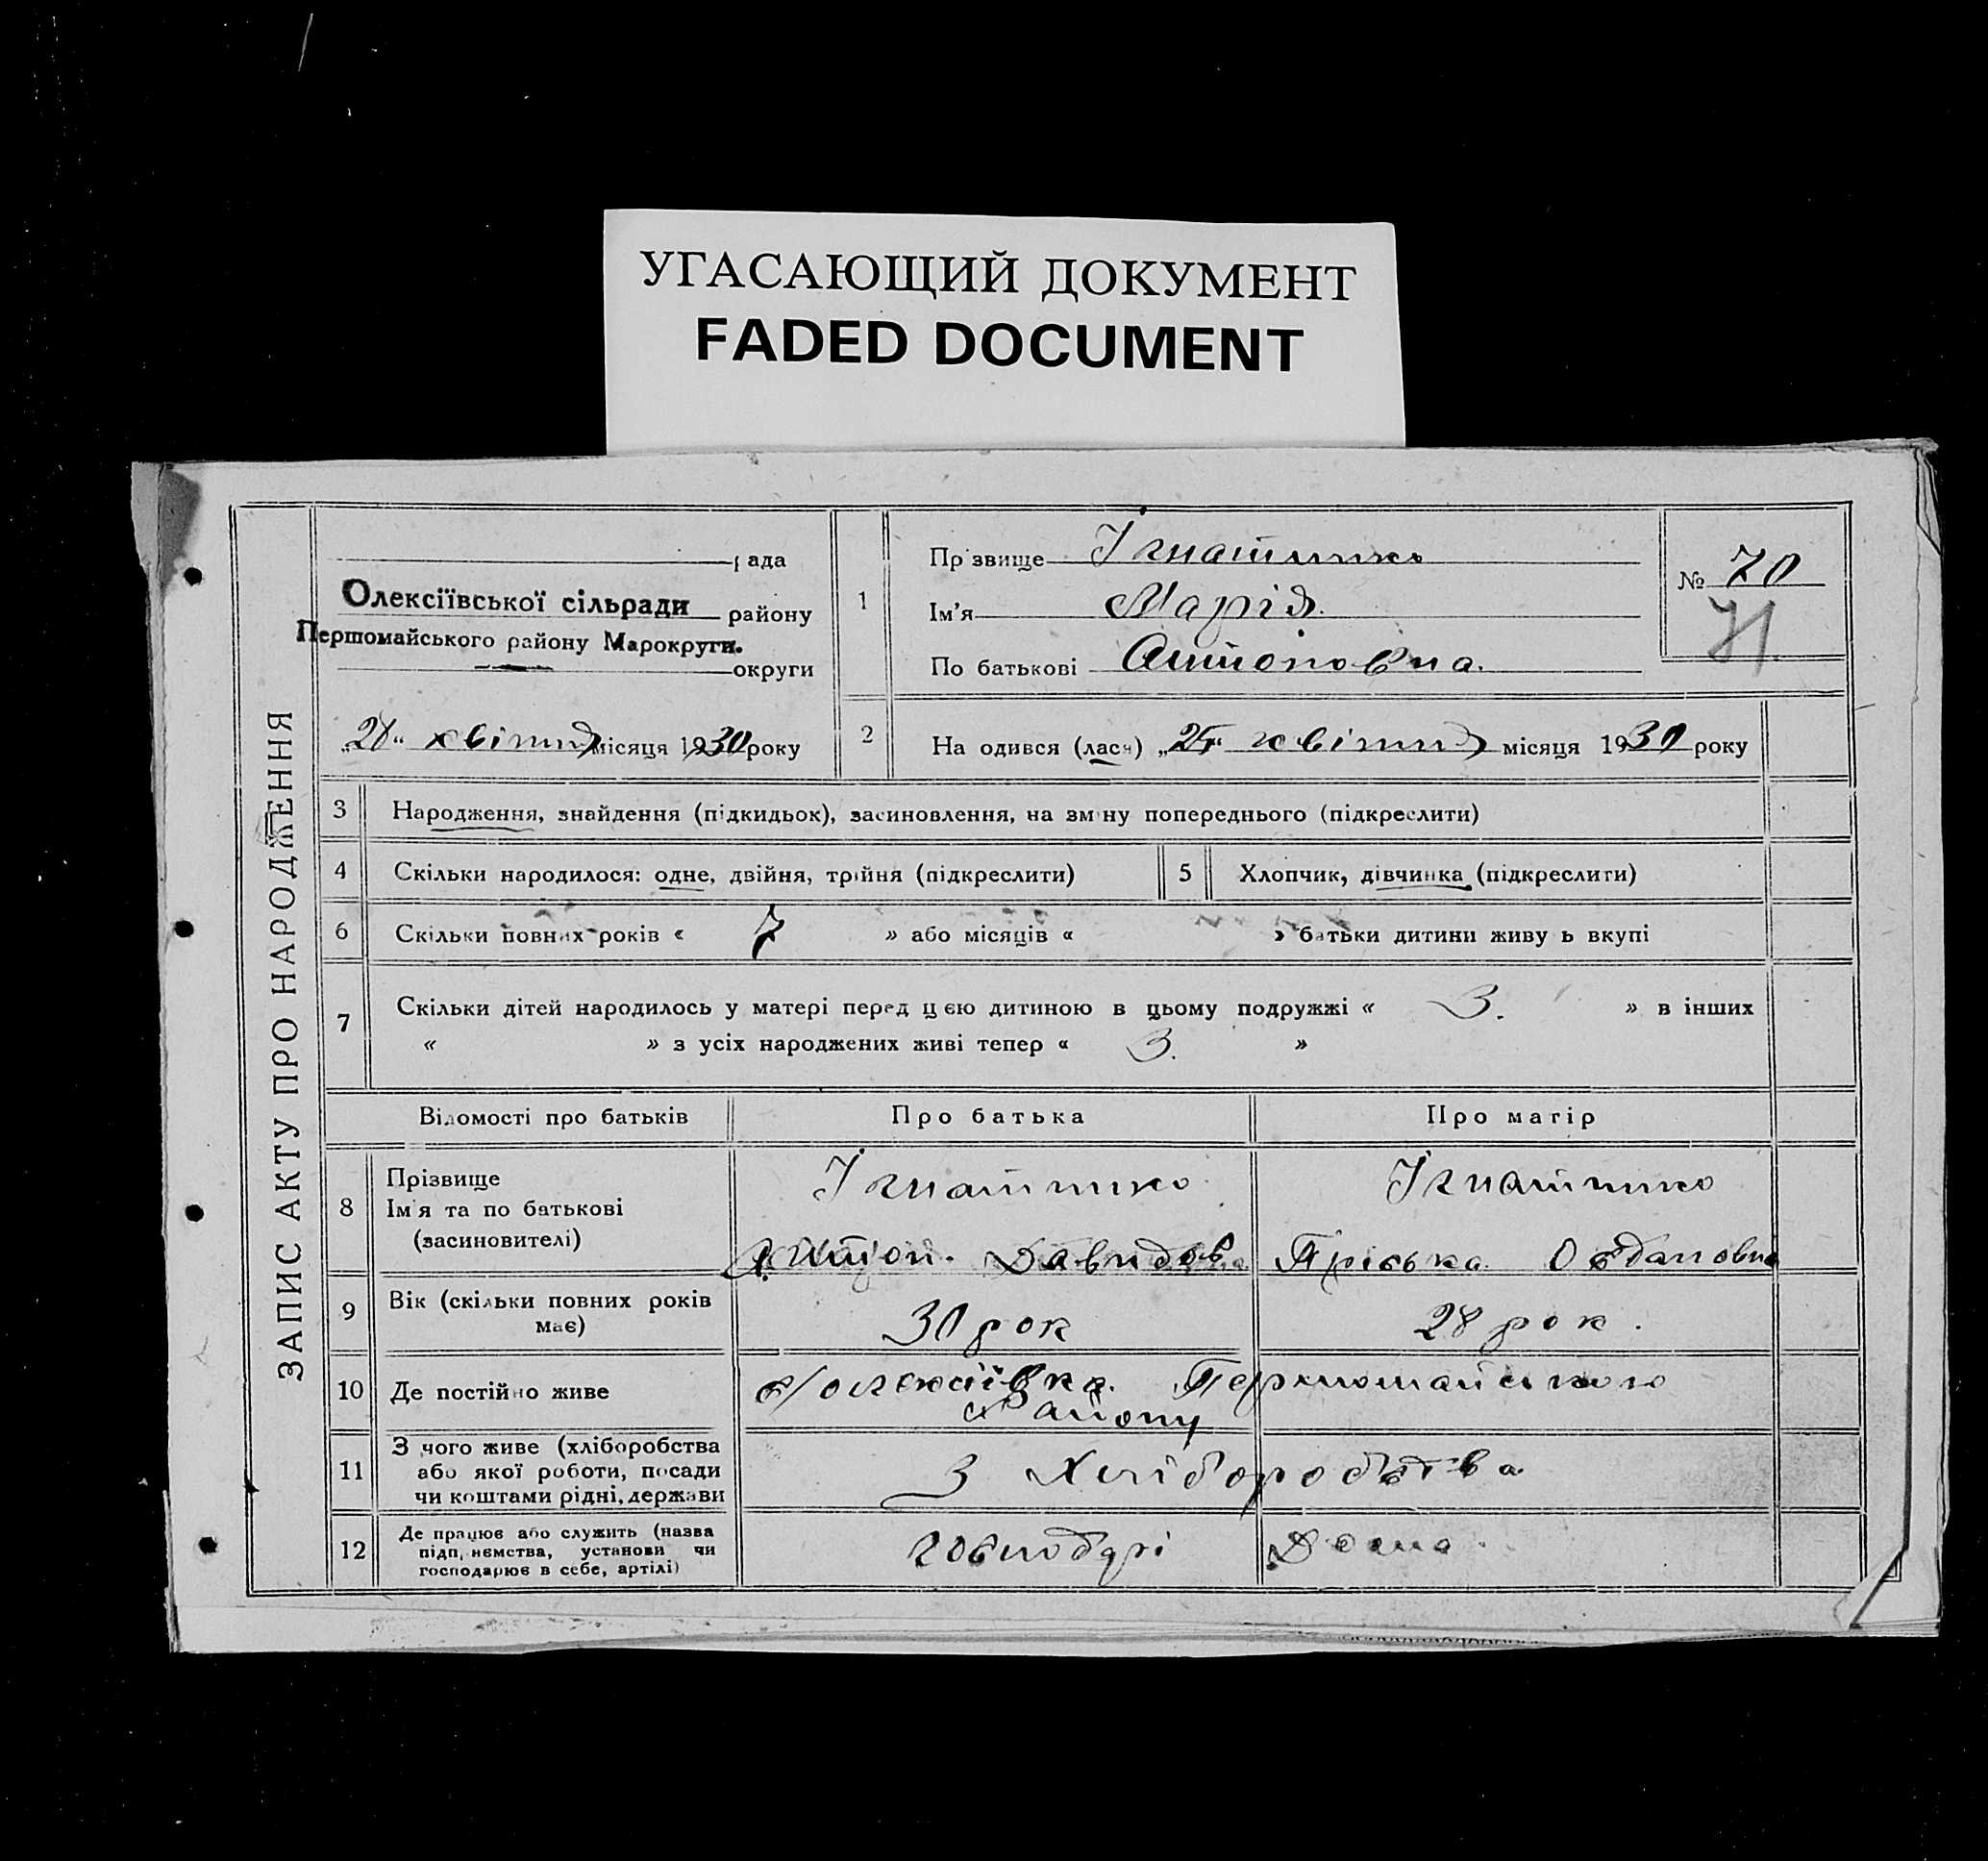 УГАСАЮЩИЙ ДОКУМЕНТ
FADED DOCUMENT
ЗАПИС АКТУ ПРО НАРОДЖЕННЯ
рада
Олексіївської сільради району
Першомайського району Марокруги.
округи
„28“ квітня місяця 1930 року
1
Прізвище Ігнатинко
Ім'я Марія.
По батькові Антоновна.
№ 70
71
2 На одився (лася) „25“ квітня місяця 1930 року
3 Народження, знайдення (підкидьок), засиновлення, на зміну попереднього (підкреслити)
4 Скільки народилося: одне, двійня, трійня (підкреслити) 5 Хлопчик, дівчинка (підкреслити)
6 Скільки повних років « 7 » або місяців « » батьки дитини живу ь вкупі
7 Скільки дітей народилось у матері перед цією дитиною в цьому подружжі « 3. » в інших
« » з усіх народжених живі тепер « 3. »
Відомості про батьків Про батька Про матір
8 Прізвище
Ім'я та по батькові
(засиновителі)
Ігнатинко
Антон. Давидов
Ігнатинко
Пріська
9 Вік (скільки повних років
має)
30 рок 28 рок.
10 Де постійно живе с/Олексіївка. Першомайського
Району
11 З чого живе (хліборобства
або якої роботи, посади
чи коштами рідні, держави
З Хліборобства
12 Де працює або служить (назва
підприємства, установи чи
господарює в себе, артілі)
Дома.